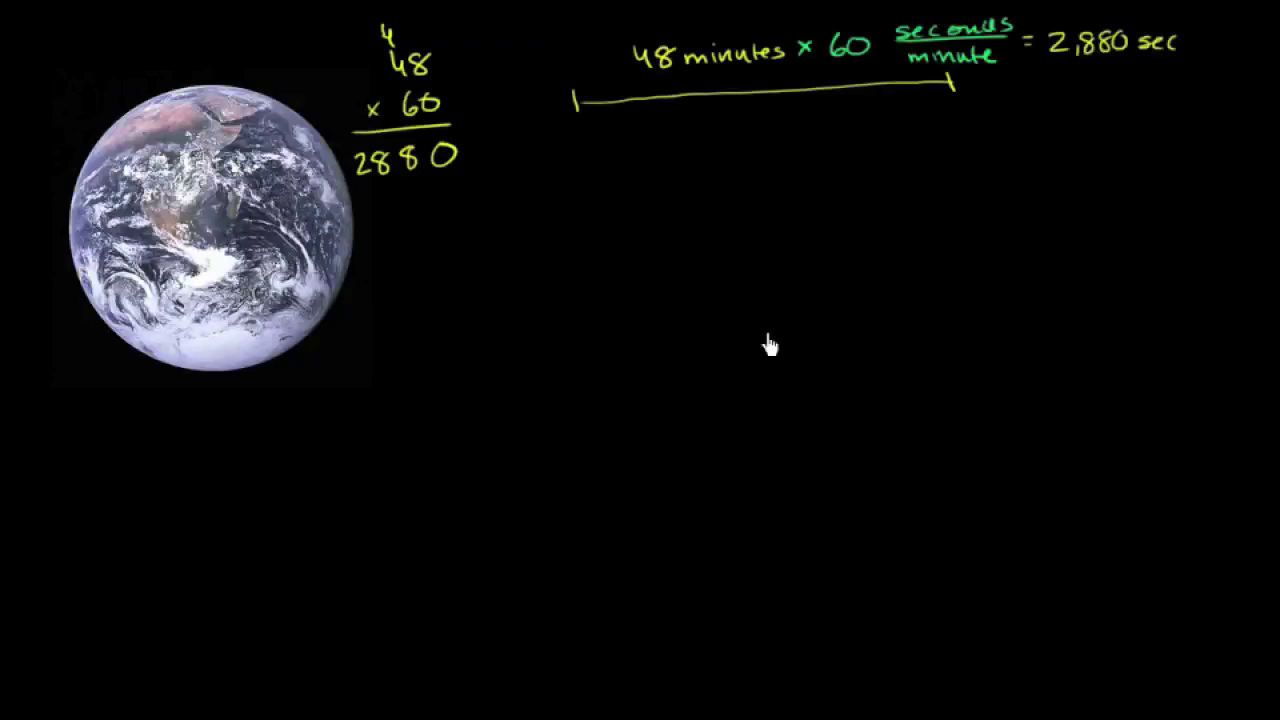 4
48
x 60
2880
48 minutes x 60 seconds/minute = 2,880 sec